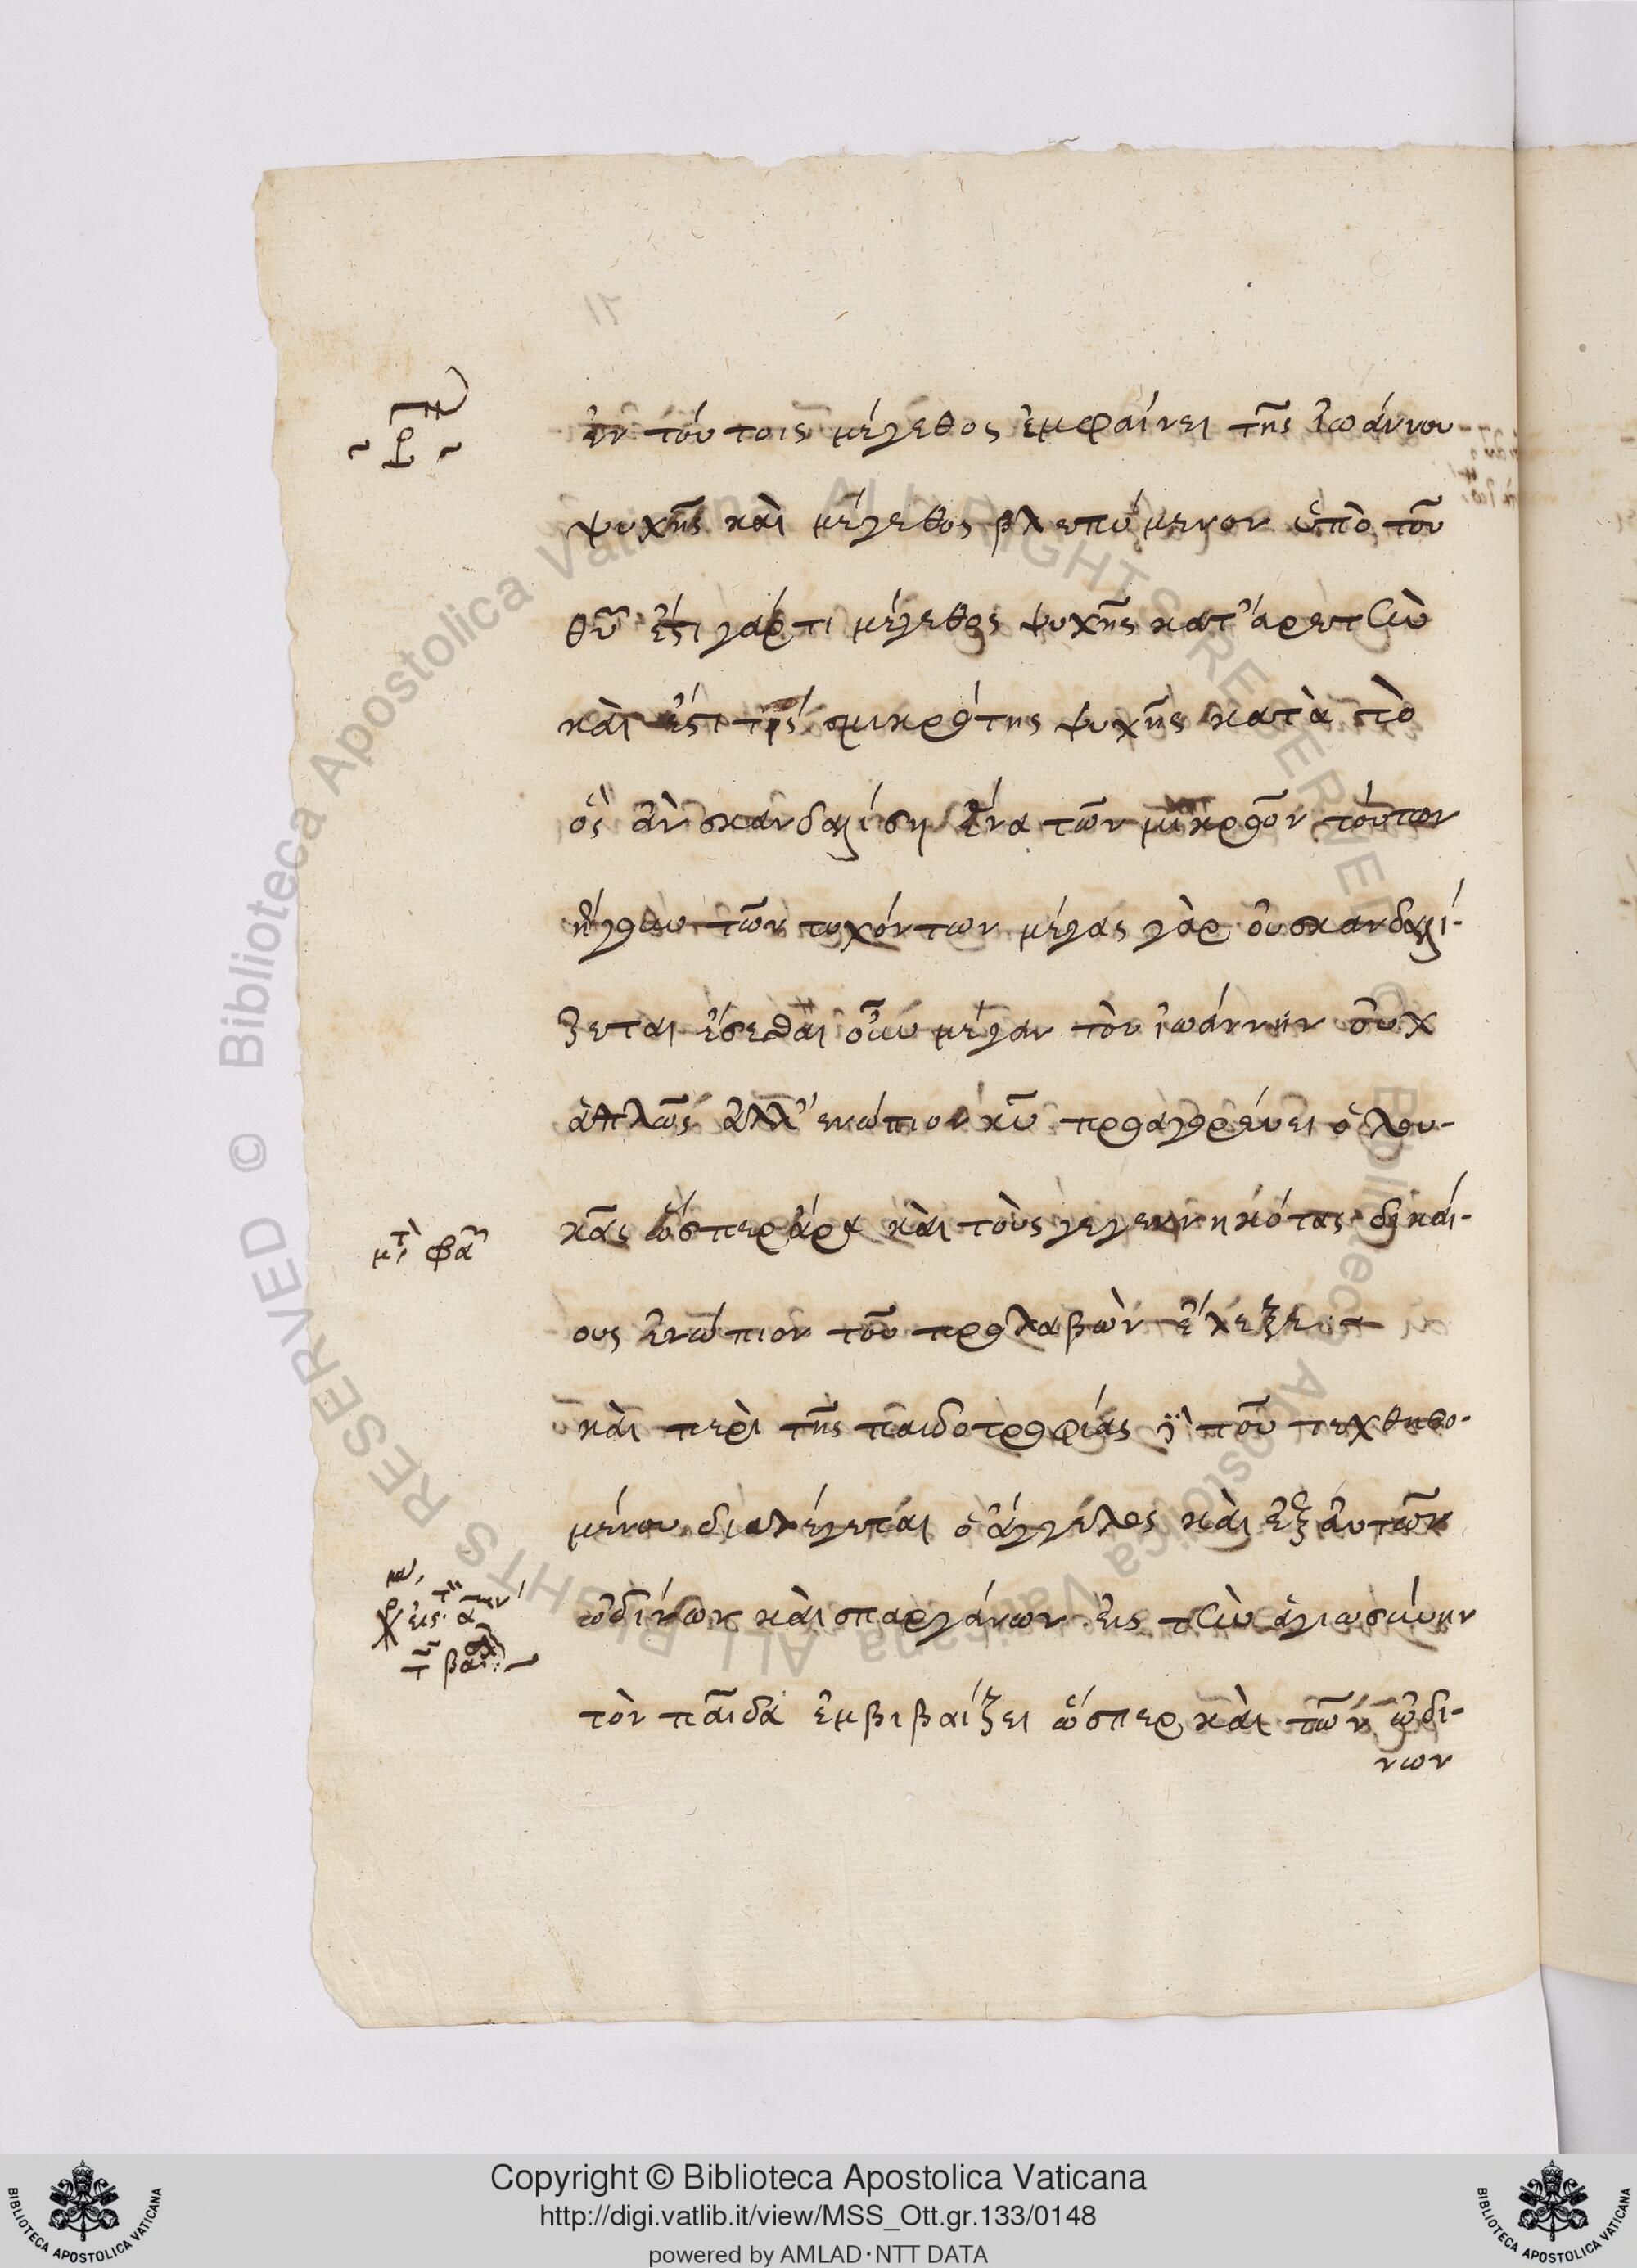 ἐν τούτοις μέγεθος ἐμφαίνει τῆς ἰωάννου
ψυχῆς καὶ μέγεθος βλεπόμενον ὑπὸ τοῦ
θῦ ἔστι γάρ τι μέγεθος ψυχῆς κατ' ἀρετὴν
καὶ ἔστι τίς σμικρότης ψυχῆς κατὰ τὸ
ὃς ἂν σκανδαλίση ἕνα τῶν μικρῶν τούτων
ἤγουν τῶν τυχόντων μέγας γὰρ οὐ σκανδαλί-
ζεται ἔσεσθαι οὖν μέγαν τὸν ἰωάννην οὐχ
ἁπλῶς ἀλλ' ἐνώπιον κῦ προαγορεύει ὁ λου-
κᾶς ὥσπερ ἄρα καὶ τοὺς γεγεννηκότας δικαί-
ους ἐνώπιον τοῦ προλαβὼν ἔλεξε
καὶ περὶ τῆς παιδοτροφίας τοῦ τεχθησο-
μένου διαλέγεται ὁ ἄγγελος καὶ ἐξ αὐτῶν
ὠδίνων καὶ σπαργάνων εἰς τὴν ἁγιωσύνην
τὸν παῖδα ἐμβιβάζει ὥσπερ καὶ τῶν ὠδί-
νων
Copyright © Biblioteca Apostolica Vaticana
http://digi.vatlib.it/view/MSS_Ott.gr.133/0148
powered by AMLAD·NTT DATA
BIBLIOTECA APOSTOLICA VATICANA
BIBLIOTECA APOSTOLICA VATICANA